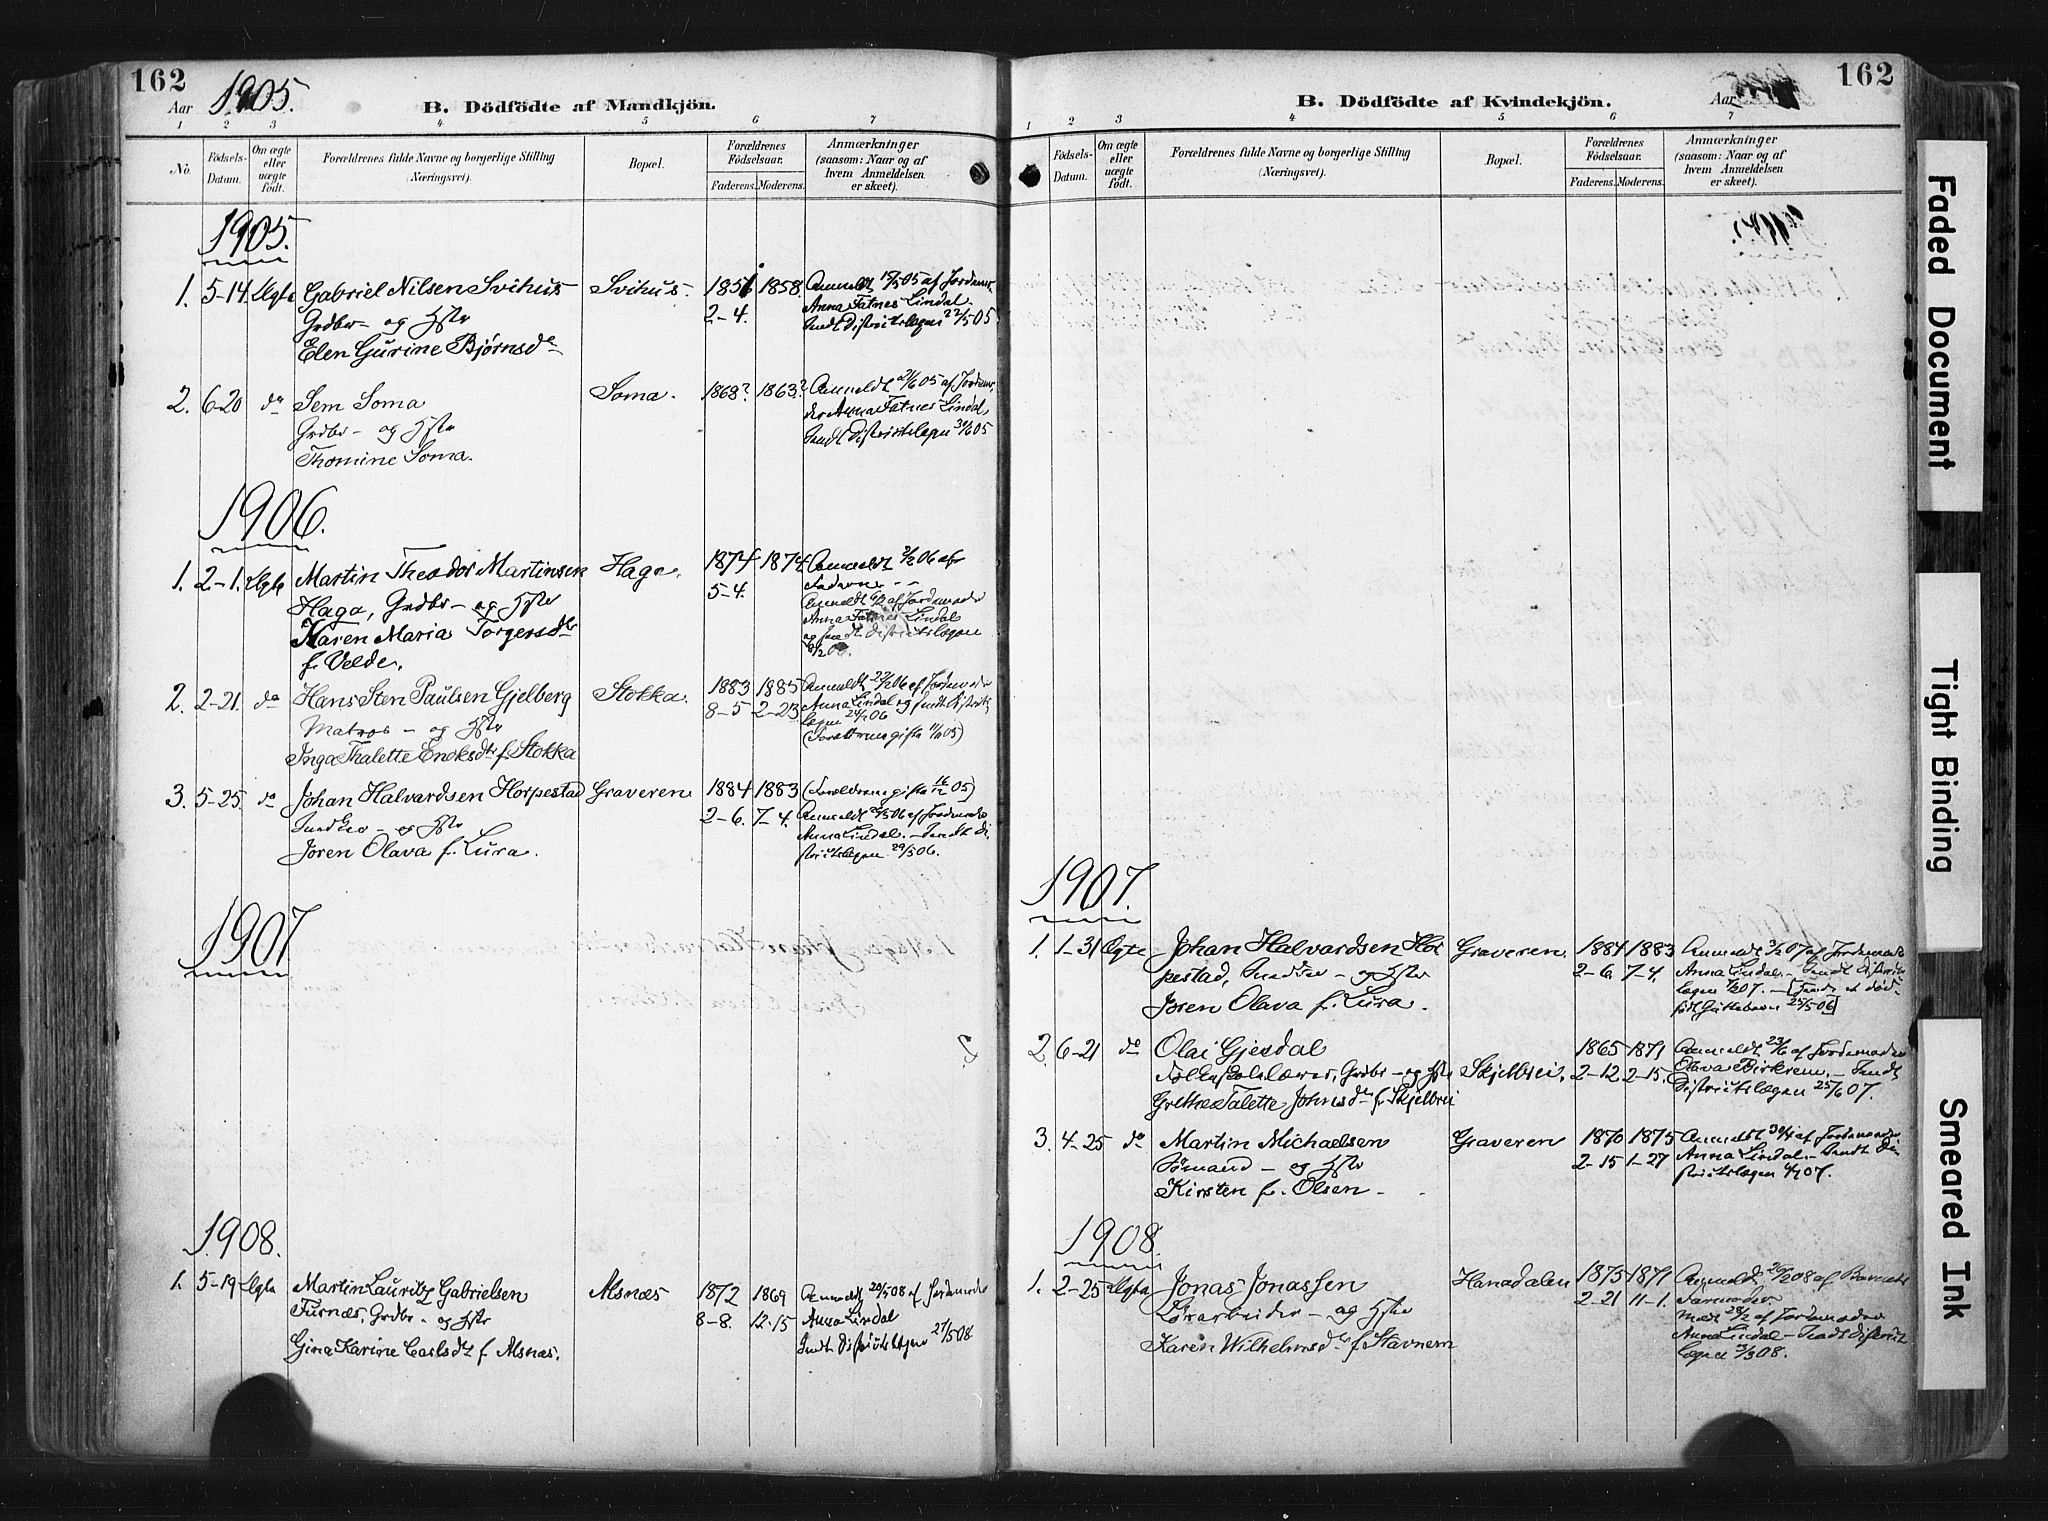 162
Aar 1905.
B. Dödfödte af Mandkjön.
1 2 3 4 5 6 7
No.
Födsels-Datum.
Om ægte eller uægte födt.
Forældrenes fulde Navne og borgerlige Stilling
(Næringsvei).
Bopæl.
Forældrenes Födselsaar.
Faderens. Moderens.
Anmærkninger
(saasom: Naar og af
hvem Anmeldelsen
er skeet).
1905.
1. 5-14 Ægte Gabriel Nilsen Svihus Svihus. 1851 1858. Anmeldt 15/5 05 af Jordemor
Grdbr - og Hstr 2-4. Anna Fatnes Lindal
Elen Gurine Bjørnsdr Sendt Distriktslægen 22/5 05
2. 6-20 do Sem Soma Soma. 1868? 1863? Anmeldt 21/6 05 af Jordemo-
Grdbr - og Hstr der Anna Fatnes Lindal
Thomine Soma. Sendt Distriktslægen 30/6 05
1906.
1. 2-1. Ægte Martin Theodor Martinsen Haga. 1874 1874 Anmeldt 2/2 06 af
Haga, Grdbr - og Hstr 5-4. Faderen -
Karen Maria Torgersdtr Anmeldt 6/2 af Jordemoder
f. Velde. Anna Fatnes Lindal
og sendt Distriktslægen
2. 2-21. do Hans Sten Paulsen Gjelberg Stokka. 1883 1885 Anmeldt 22/2 06 af Jordemoder
Matros - og Hstr 8-5 2-23 Anna Lindal og sendt Distrikts
Inga Thalette Enoksdtr f. Stokka lægen 24/2 06
3. 5-25. do Johan Halvardsen Horpestad Graveren 1884 1883 (Forældrene gifte 16/12 05)
Snedker - og Hstr 2-6. 7-4. Anmeldt 26/5 06 af Jordemoder
Joren Olava f. Lura. Anna Lindal. - Sendt Di-
striktslægen 29/5 06.
1907
1908.
1. 5-19 Ægte Martin Lauritz Gabrielsen Alsnæs 1872 1869 Anmeldt 20/5 08 af Jordemoder
Furnæs, Grdbr - og Hstr 8-8. 12-15 Anna Lindal
Gina Karine Carlsdt f. Alsnæs. Sendt Distriktslægen 27/5 08
162
B. Dödfödte af Kvindekjön.
Aar
1 2 3 4 5 6 7
Födsels-Datum.
Om ægte eller uægte födt.
Forældrenes fulde Navne og borgerlige Stilling
(Næringsvei).
Bopæl.
Forældrenes Födselsaar.
Faderens. Moderens.
Anmærkninger
(saasom: Naar og af
hvem Anmeldelsen
er skeet).
1907.
1. 1-31 Ægte Johan Halvardsen Hor Graveren. 1884 1883 Anmeldt 3/2 07 af Jordemoder
pestad, Snedker - og Hstr 2-6. 7-4. Anna Lindal. - Sendt Distrikts
Joren Olava f. Lura. lægen 7/2 07.
født Guttebarn 25/5 06]
2. 6-21 do Olai Gjesdal 1865 1871 Anmeldt 23/6 af Jordemoder
Folkeskolelærer, Grdbr - og Hstr Skjelbrei. 2-12 2-15. Olava Birkrem. - Sendt
Grethe Talette Johnsdr f. Skjelbrei Distriktslægen 25/6 07.
3. 4-25 do Martin Michaelsen Graveren 1870 1875 Anmeldt 30/4 af Jordemoder
Sømand - og Hstr 2-15 1-27 Anna Lindal. - Sendt Di-
Kirsten f. Olsen - striktslægen
1908.
1. 2-25 Ægte Jonas Jonassen Hanadalen 1875 1871 Anmeldt 26/2 08 af Barnets
Løsarbeider - og Hstr 2-21 11-1. Farmoder
Karen Wilhelmsdtr f. Stavnem Med 28/2 af Jordemoder
Anna Lindal - Sendt Distrikt
lægen 3/3 08.
Faded Document
Tight Binding
Smeared Ink